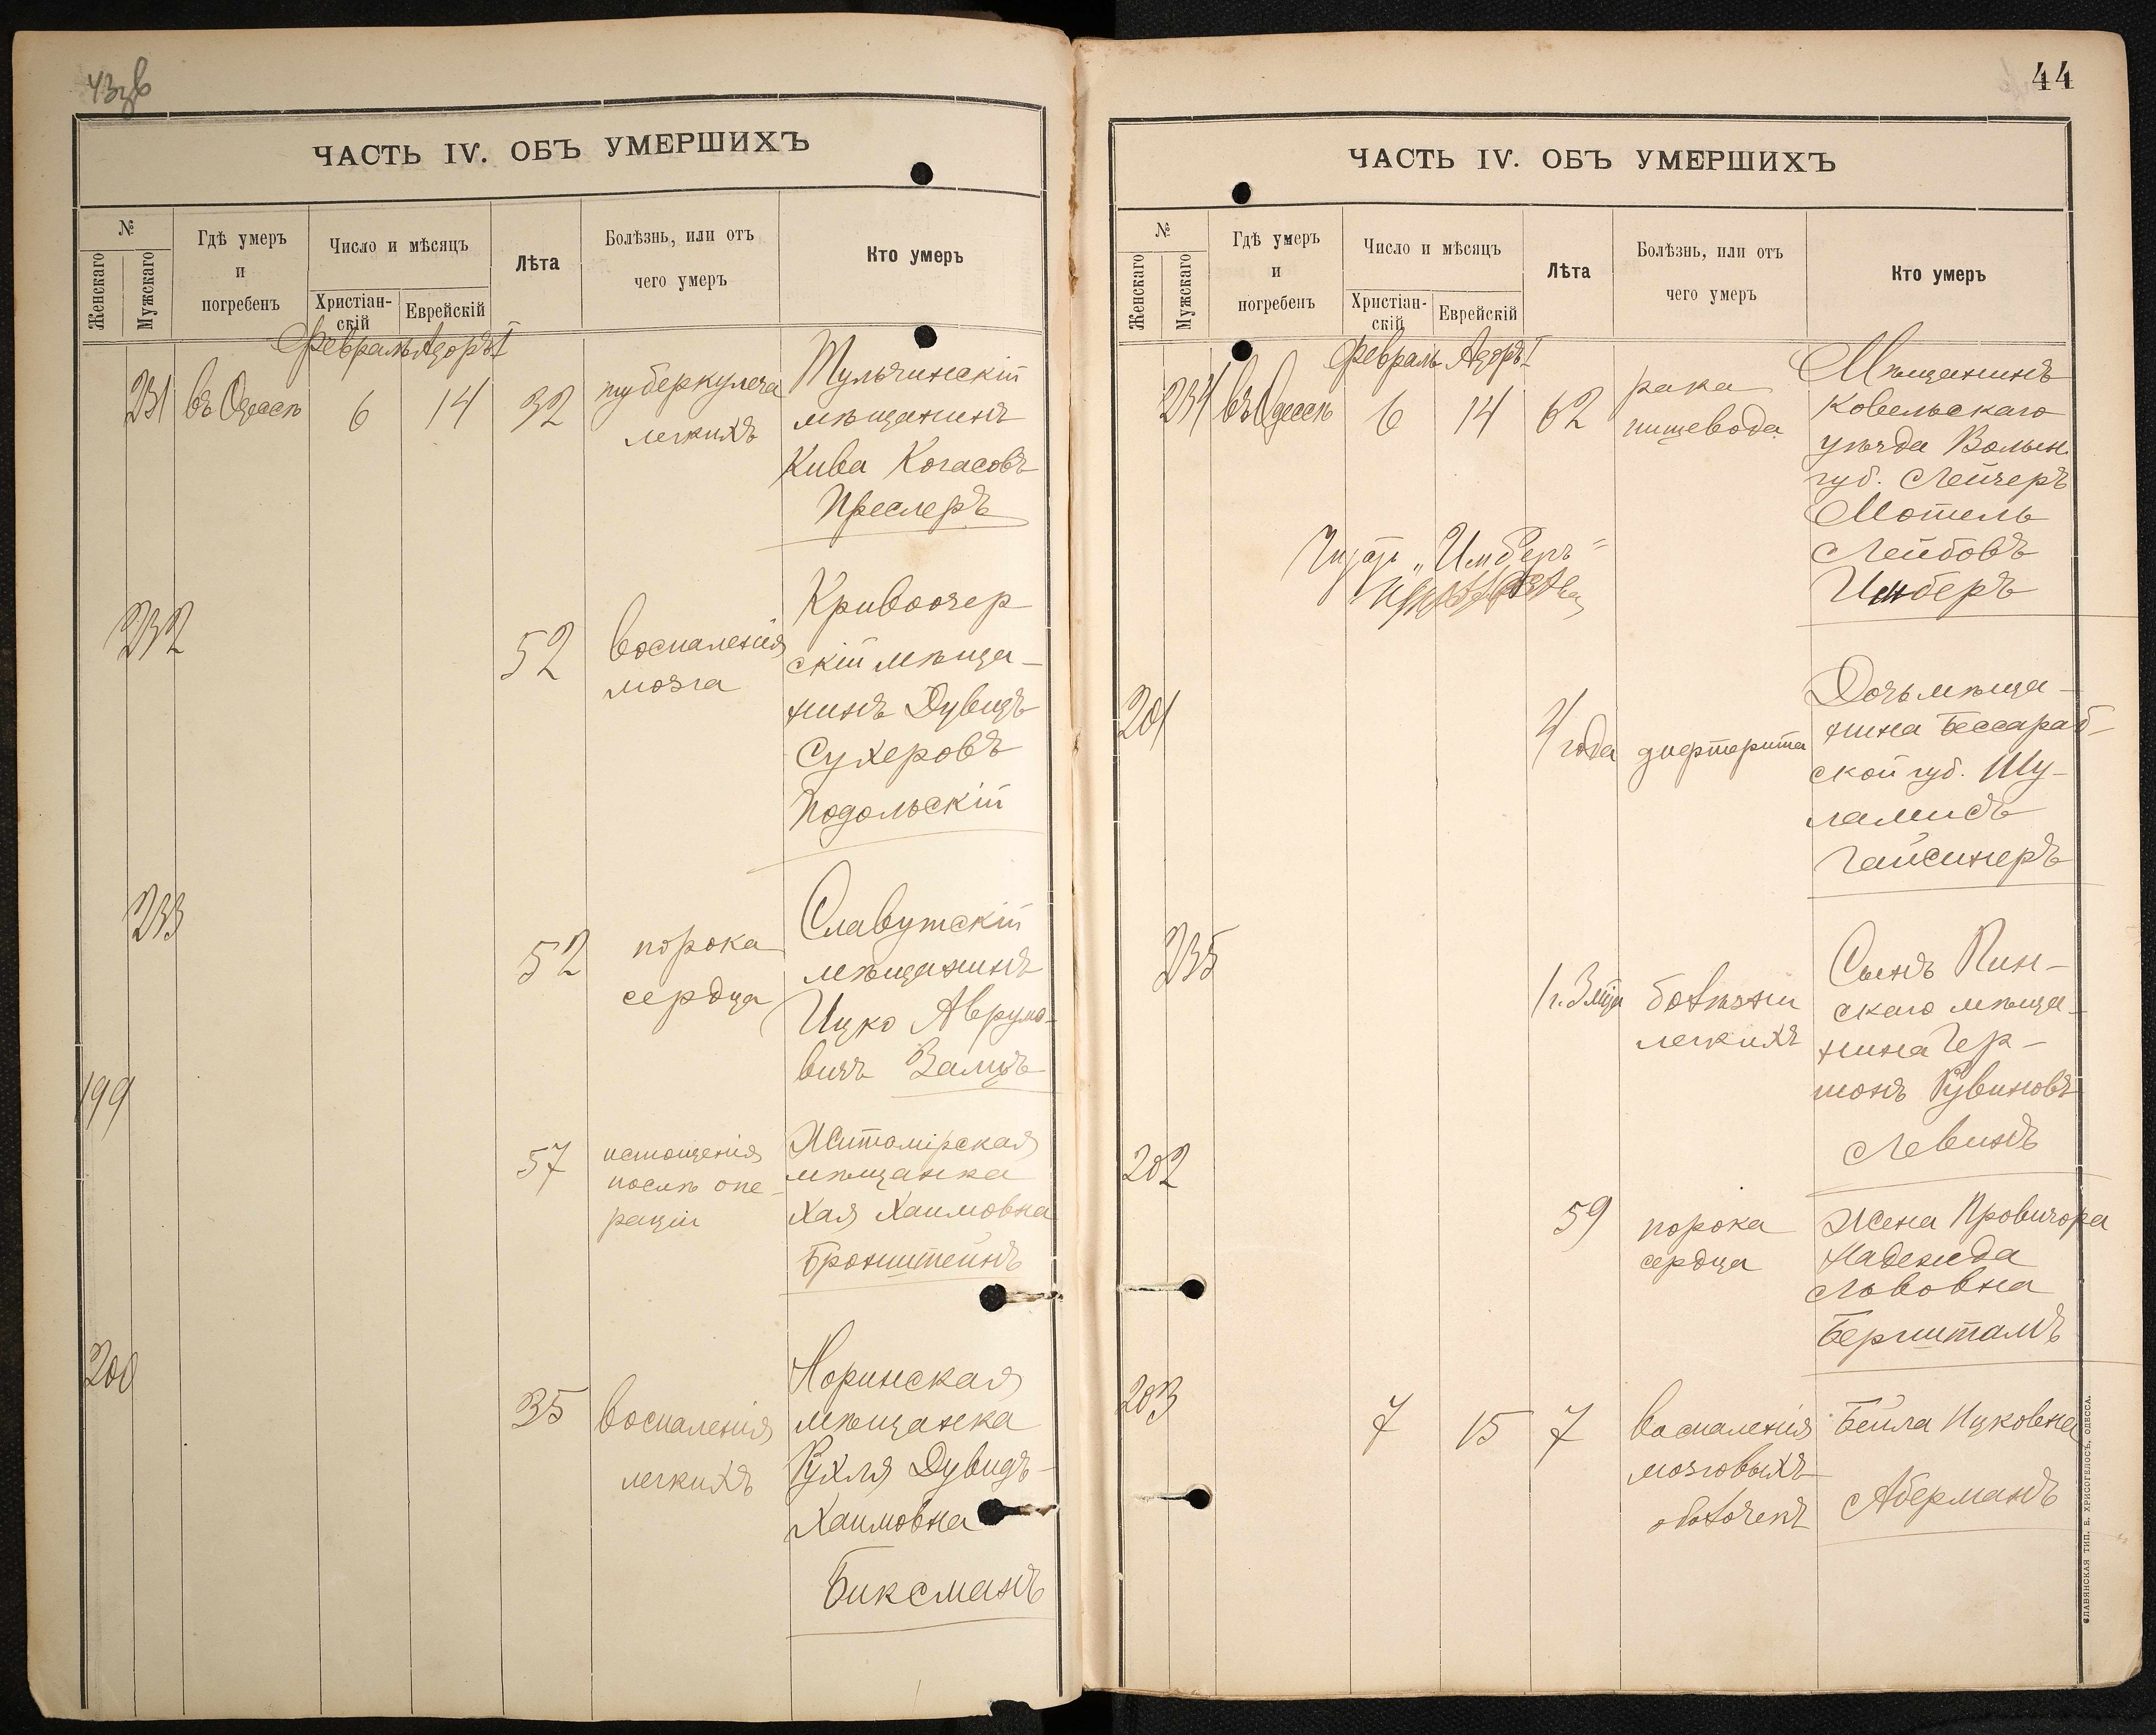 43зв
ЧАСТЬ IV. ОБЪ УМЕРШИХЪ
№
Женскаго
Мужскаго
Гдѣ умеръ
и
погребенъ
Число и мѣсяцъ
Христіан-
скій
Еврейскій
Лѣта
Болѣзнь, или отъ
чего умеръ
Кто умеръ
Февраль Адоръ I
231 въ Одессѣ 6 14 32
туберкулеза
легкихъ
Тульчинскій
мѣщанинъ
Кива Когасовъ
Преслеръ
232
52
воспаленія
мозга
Кривоозер
скій мѣща-
нинъ Дувидъ
Сухеровъ
Подольскій
233
52
порока
сердца
Славутскій
мѣщанинъ
Ицко Аврумо-
вичъ Замдъ
199
57
истощенія
послѣ опе-
раціи
Житомірская
мѣщанка
Хая Хаимовна
Бронштейнъ
200
35
воспаленія
легкихъ
Норинская
мѣщанка
Рухля Дувидъ-
Хаимовна
Биксманъ
44
ЧАСТЬ IV. ОБЪ УМЕРШИХЪ
№
Женскаго
Мужскаго
Гдѣ умеръ
и
погребенъ
Число и мѣсяцъ
Христіан-
скій
Еврейскій
Лѣта
Болѣзнь, или отъ
чего умеръ
Кто умеръ
Февраль Адоръ I
234 въ Одессѣ 6 14 62
рака
пищевода
Мѣщанинъ
Ковельскаго
уѣзда Волын.
губ. Лейзеръ
Мотель
Лейбовъ
Имберъ
"Имберъ"
201
4 года
дифтерита
Дочь мѣща-
нина Бессараб-
ской губ. Шу-
ламисъ
Гайсинеръ
235
1 г. 3 мца
болѣзни
легкихъ
Сынъ Пин-
скаго мѣща-
нина Гер-
шонъ Рувиновъ
Левинъ
202
59
порока
сердца
Жена Провизора
Надежда
Львовна
Бергштамъ
203
7 15 7
воспаленія
мозговыхъ
оболочекъ
Бейла Ицковна
Аберманъ
СЛАВЯНСКАЯ ТИП. Е. ХРИСОГЕЛОСЪ, ОДЕССА.